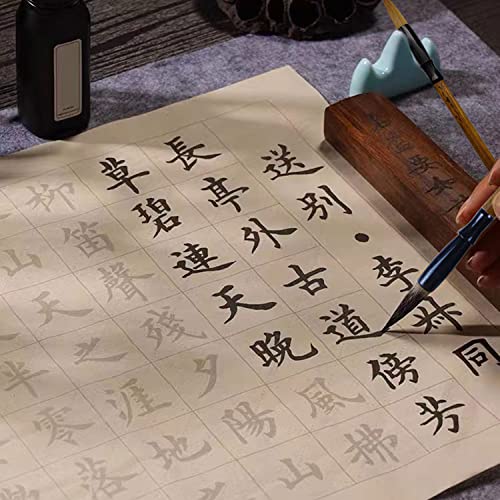 送别·李叔同
長亭外古道傍芳
草碧連天晚風拂
柳笛聲殘夕陽山
山天之涯地
半零落